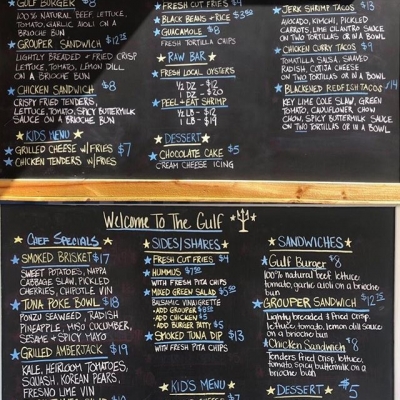 GULF BURGER $8
100% NATURAL BEEF, LETTUCE,
TOMATO, GARLIC AIOLI ON A
BRIOCHE BUN
GROUPER SANDWICH $12.25
LIGHTLY BREADED + FRIED CRISP
LETTUCE, TOMATO, LEMON DILL
ON A BRIOCHE BUN
CHICKEN SANDWICH $8
CRISPY FRIED TENDERS,
LETTUCE, TOMATO, SPICY BUTTERMILK
SAUCE ON A BRIOCHE BUN
KIDS MENU
GRILLED CHEESE W/FRIES $7
CHICKEN TENDERS W/FRIES
FRESH CUT FRIES $4
BLACK BEANS + RICE $3.50
GUACAMOLE $8
FRESH TORTILLA CHIPS
RAW BAR
FRESH LOCAL OYSTERS
1/2 DZ - $12
1 DZ - $20
PEEL + EAT SHRIMP
1/2 LB - $12
1 LB - $19
DESSERT
CHOCOLATE CAKE $5
CREAM CHEESE ICING
JERK SHRIMP TACOS $13
AVOCADO, KIMCHI, PICKLED
CARROTS, LIME CILANTRO SAUCE
ON TWO TORTILLAS OR IN A BOWL
CHICKEN CURRY TACOS $9
TOMATILLA SALSA, SHAVED
RADISH, COTIJA CHEESE
ON TWO TORTILLAS OR IN A BOWL
BLACKENED REDFISH TACOS $14
KEY LIME COLE SLAW, GREEN
TOMATO, CAULIFLOWER CHOW
CHOW, SPICY BUTTERMILK SAUCE
ON TWO TORTILLAS OR IN A BOWL
Welcome To The Gulf
CHEF SPECIALS
SMOKED BRISKET $17
SWEET POTATOES, NAPPA
CABBAGE SLAW, PICKLED
CHERRIES, CHIPOTLE VIN
TUNA POKE BOWL $18
PONZU SEAWEED, RADISH
PINEAPPLE, MISO CUCUMBER,
SESAME + SPICY MAYO
GRILLED AMBERJACK $19
KALE, HEIRLOOM TOMATOES,
SQUASH, KOREAN PEARS,
FRESNO LIME VIN
SIDES/SHARES
FRESH CUT FRIES $4
HUMMUS
WITH FRESH PITA CHIPS
MIXED GREEN SALAD
BALSAMIC VINAIGRETTE
- ADD GROUPER
- ADD CHICKEN $5
- ADD BURGER PATTY $5
SMOKED TUNA DIP $13
WITH FRESH PITA CHIPS
KIDS MENU
SANDWICHES
Gulf Burger $8
100% natural beef lettuce
tomato, garlic aioli on a brioche
bun
GROUPER SANDWICH $12.25
Lightly breaded + Fried Crisp,
lettuce, tomato, lemon dill sauce
on a brioche bun
Chicken Sandwich $8
Tenders Fried Crisp, lettuce,
tomato spicy buttermilk on a
brioche bun
DESSERT $5